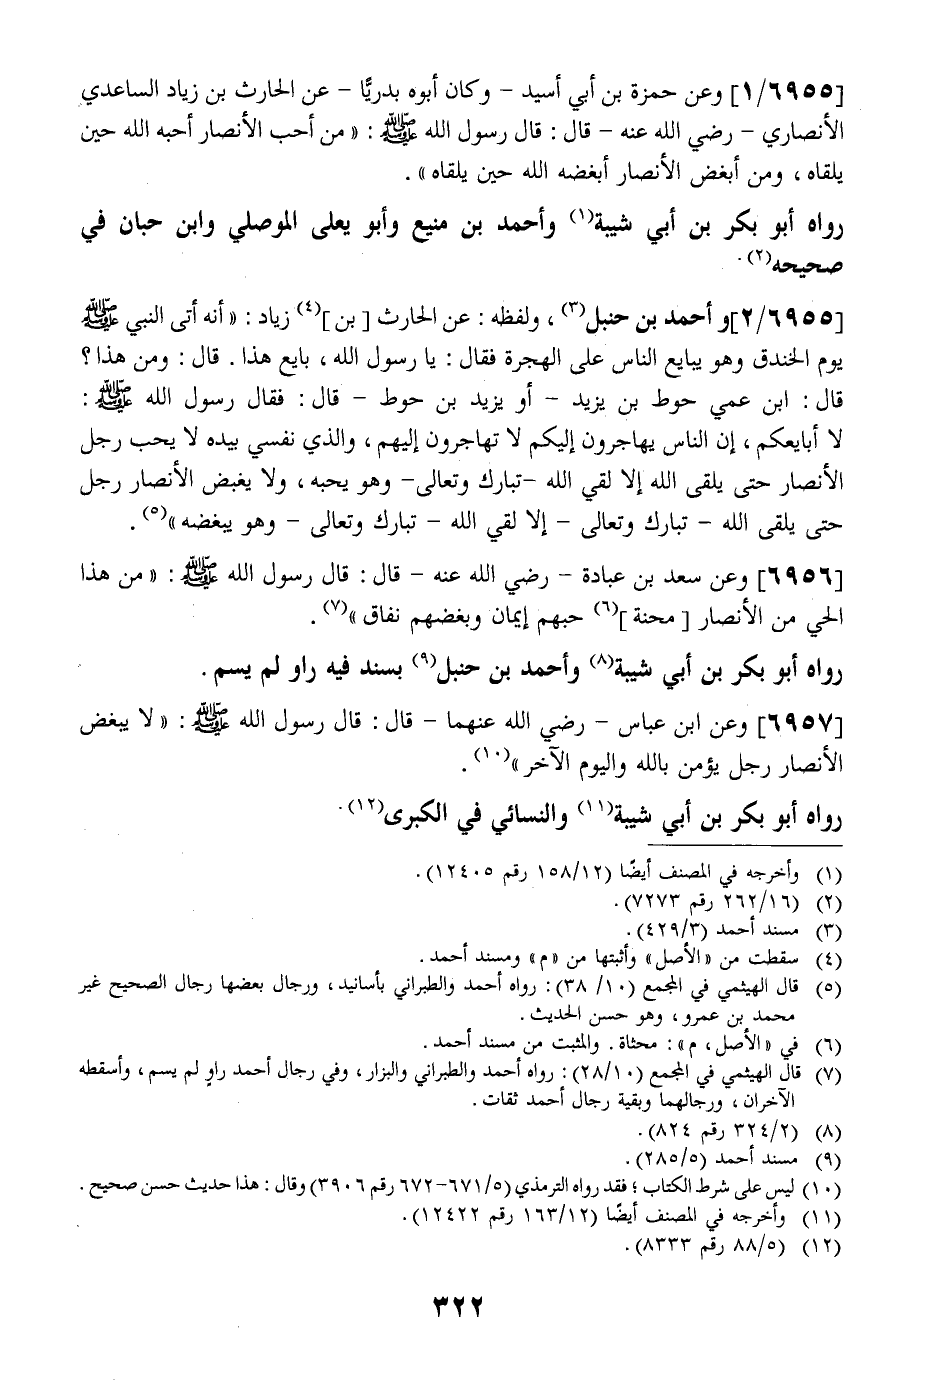 [١/٦٩٥٥] وعن حمزة بن أبي أسيد – وكان أبوه بدريًّا – عن الحارث بن زياد الساعدي
الأنصاري – رضي الله عنه – قال : قال رسول الله ﷺ : « من أحب الأنصار أحبه الله حين
يلقاه ، ومن أبغض الأنصار أبغضه الله حين يلقاه » .
رواه أبو بكر بن أبي شيبة(١) وأحمد بن منيع وأبو يعلى الموصلي وابن حبان في
صحيحه(٢).
[٢/٦٩٥٥]و أحمد بن حنبل(٣) ، ولفظه : عن الحارث [ بن ](٤) زياد : « أنه أتى النبي ﷺ
يوم الخندق وهو يبايع الناس على الهجرة فقال : يا رسول الله ، بايع هذا . قال : ومن هذا ؟
قال : ابن عمي حوط بن يزيد – أو يزيد بن حوط – قال : فقال رسول الله ﷺ :
لا أبايعكم ، إن الناس يهاجرون إليكم لا تهاجرون إليهم ، والذي نفسي بيده لا يحب رجل
الأنصار حتى يلقى الله إلا لقي الله –تبارك وتعالى– وهو يحبه ، ولا يغبض الأنصار رجل
حتى يلقى الله – تبارك وتعالى – إلا لقي الله – تبارك وتعالى – وهو يبغضه »(٥) .
[٦٩٥٦] وعن سعد بن عبادة – رضي الله عنه – قال : قال رسول الله ﷺ : « من هذا
الحي من الأنصار [ محنة ](٦) حبهم إيمان وبغضهم نفاق »(٧) .
رواه أبو بكر بن أبي شيبة(٨) وأحمد بن حنبل(٩) بسند فيه راو لم يسم .
[٦٩٥٧] وعن ابن عباس – رضي الله عنهما – قال : قال رسول الله ﷺ : « لا يبغض
الأنصار رجل يؤمن بالله واليوم الآخر »(١٠) .
رواه أبو بكر بن أبي شيبة(١١) والنسائي في الكبرى(١٢).
(١) وأخرجه في المصنف أيضًا (١٥٨/١٢ رقم ١٢٤٠٥) .
(٢) (٢٦٢/١٦ رقم ٧٢٧٣) .
(٣) مسند أحمد (٤٢٩/٣) .
(٤) سقطت من «الأصل» وأثبتها من «م» ومسند أحمد .
(٥) قال الهيثمي في المجمع (١٠/ ٣٨) : رواه أحمد والطبراني بأسانيد ، ورجال بعضها رجال الصحيح غير
محمد بن عمرو ، وهو حسن الحديث .
(٦) في «الأصل ، م» : محثاة . والمثبت من مسند أحمد .
(٧) قال الهيثمي في المجمع (٢٨/١٠) : رواه أحمد والطبراني والبزار ، وفي رجال أحمد راوٍ لم يسم ، وأسقطه
الآخران ، ورجالهما وبقية رجال أحمد ثقات .
(٨) (٣٢٤/٢ رقم ٨٢٤) .
(٩) مسند أحمد (٢٨٥/٥) .
(١٠) ليس على شرط الكتاب ؛ فقد رواه الترمذي (٦٧١/٥–٦٧٢ رقم ٣٩٠٦) وقال : هذا حديث حسن صحيح .
(١١) وأخرجه في المصنف أيضًا (١٦٣/١٢ رقم ١٢٤٢٢) .
(١٢) (٨٨/٥ رقم ٨٣٣٣) .
٣٢٢